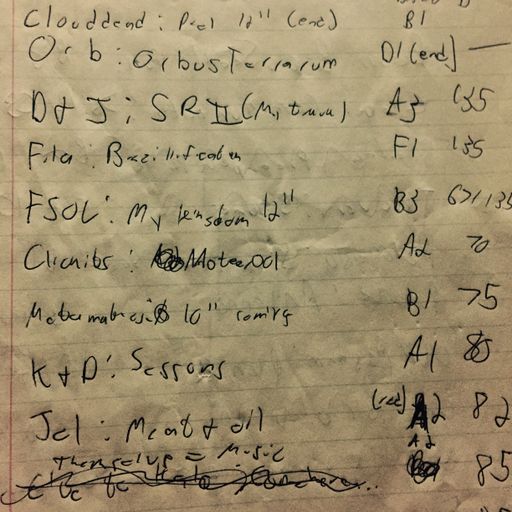 Clouddead : Peel 12" (end) B1
Orb : Orbus Terrarum D1 (end) —
D & J : SR II (My tunu) A3 135
Fila : Brazilification F1 135
FSOL : My kingdom 12" B3 67/135
Clicnibs : Motewool A2 70
10" coming B1 75
K & D : Sessions A1 85
Jel : Meat & oil (red) A2 82
A2
Themselves = Music 85